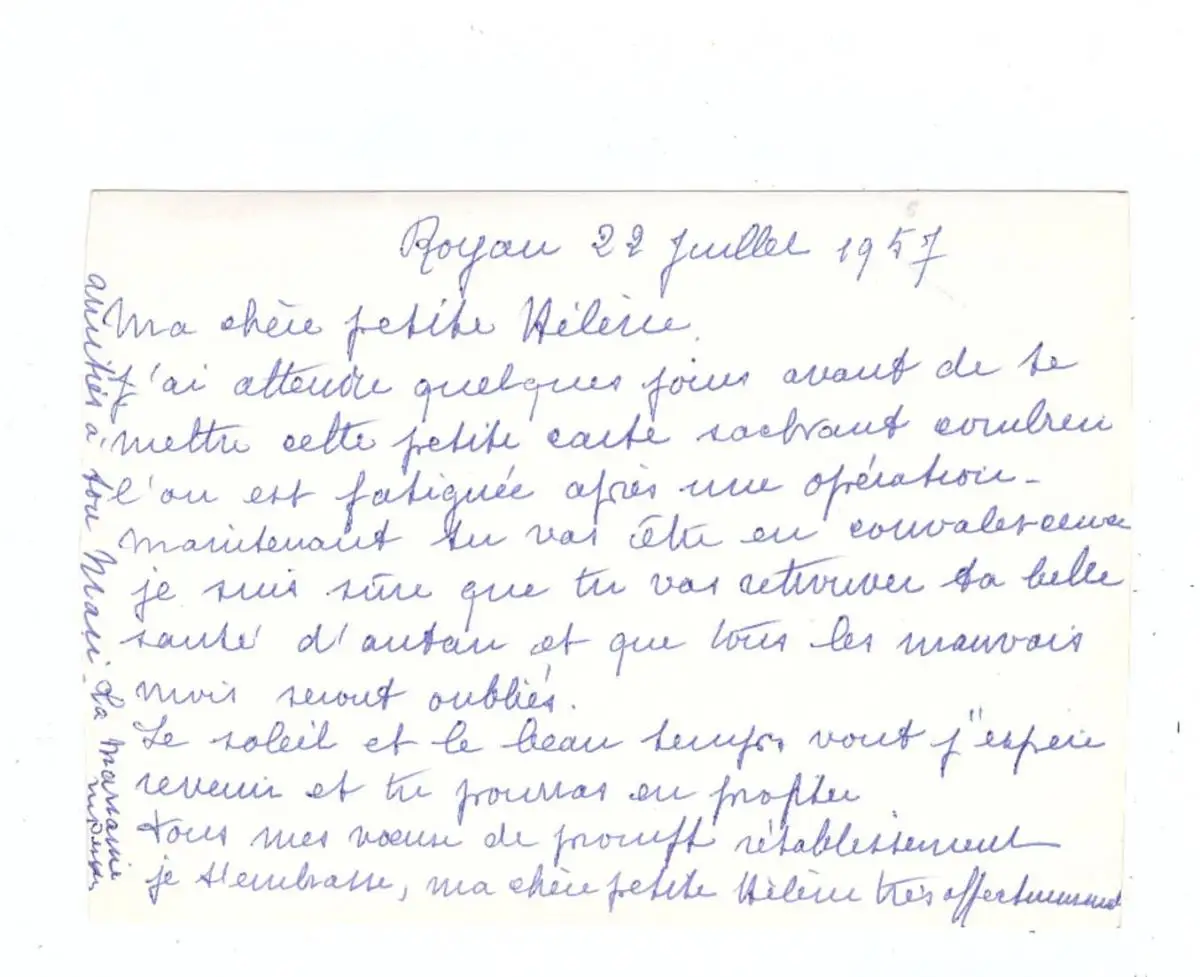 Royan 22 juillet 1957
Ma chère petite Hélène.
J'ai attendu quelques jours avant de te
mettre cette petite carte sachant combien
l'on est fatiguée après une opération -
maintenant tu vas être en convalescence
je suis sûre que tu vas retrouver ta belle
santé d'antan et que tous les mauvais
mois seront oubliés.
Le soleil et le beau temps vont j"espère
revenir et tu pourras en profiter
tous mes voeux de prompt rétablissement
je t'embrasse, ma chère petite Hélène très affectueusement
amitiés à ton Mari. La Marraine